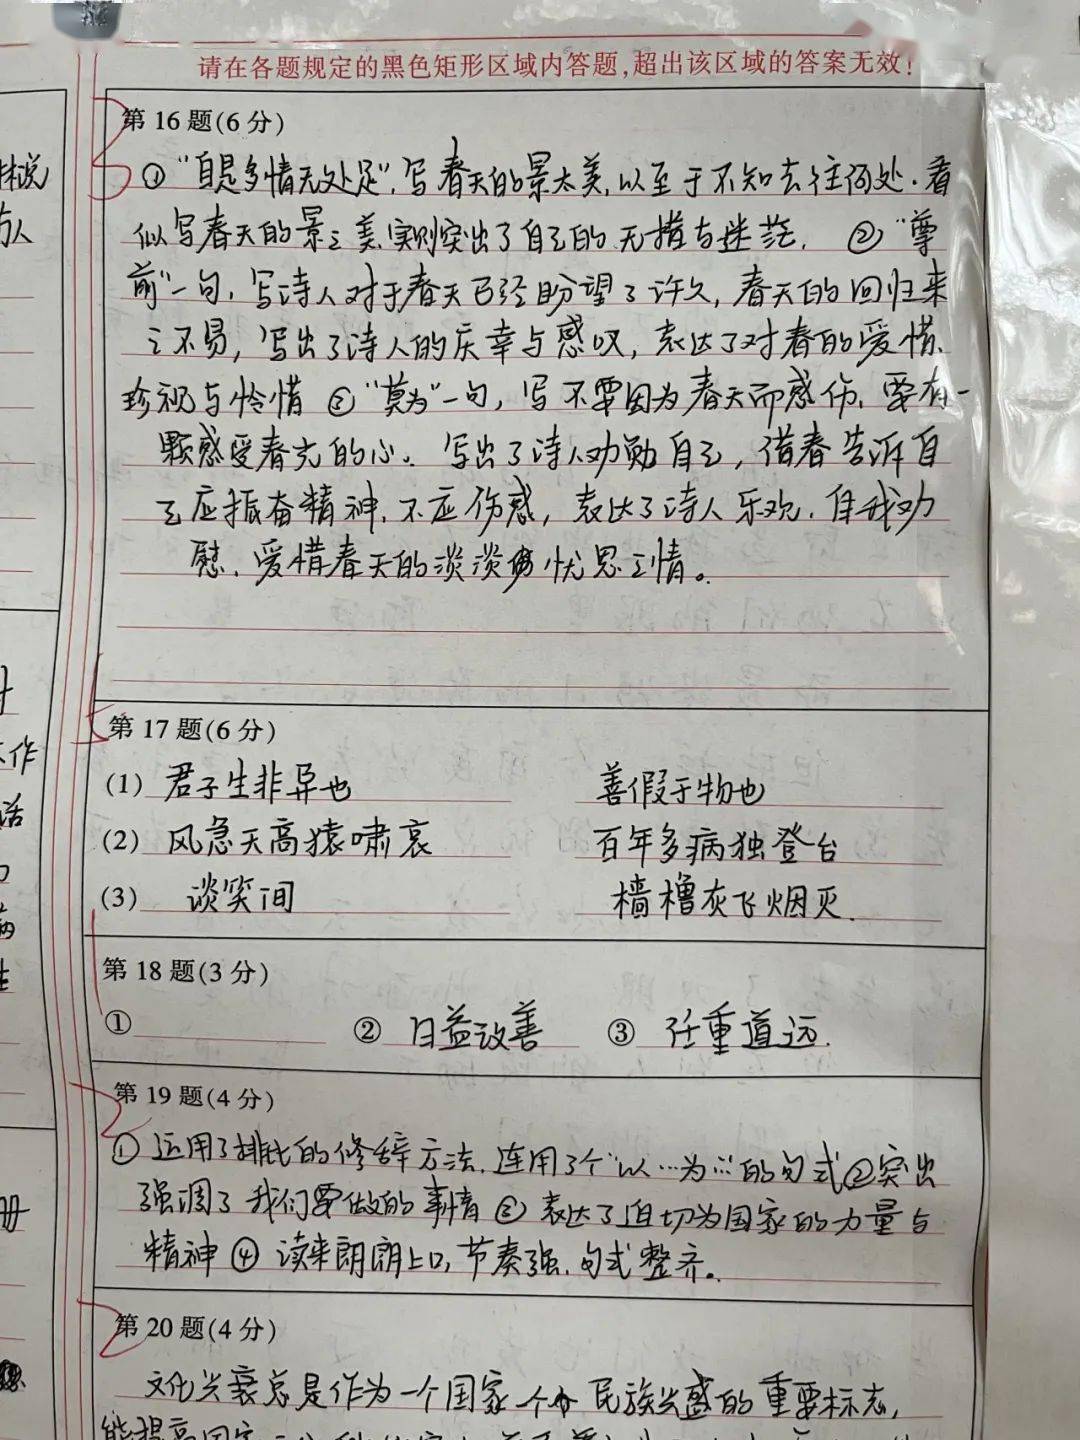 请在各题规定的黑色矩形区域内答题,超出该区域的答案无效!
第16题(6分)
①“自是多情无处足”,写春天的景太美,以至于不知去往何处.看
似写春天的景之美,实则突出了自己的无措与迷茫. ②“尊
前”一句,写诗人对于春天已经盼望了许久,春天的回归来
之不易,写出了诗人的庆幸与感叹,表达了对春的爱惜、
珍视与怜惜 ③“莫为”一句,写不要因为春天而感伤,要有一
颗感受春光的心。写出了诗人劝勉自己,借春告诉自
己应振奋精神,不应伤感,表达了诗人乐观.自我劝
慰、爱惜春天的淡淡忧思之情。
第17题(6分)
(1) 君子生非异也 善假于物也
(2) 风急天高猿啸哀 百年多病独登台
(3) 谈笑间 樯橹灰飞烟灭.
第18题(3分)
① ② 日益改善 ③ 任重道远.
第19题(4分)
①运用了排比的修辞方法.连用了个“以…为…”的句式②突出
强调了我们要做的事情③表达了迫切为国家的力量与
精神④读来朗朗上口,节奏强,句式整齐。
第20题(4分)
文化兴衰总是作为一个国家 个 民族兴盛的重要标志,
能提高国家